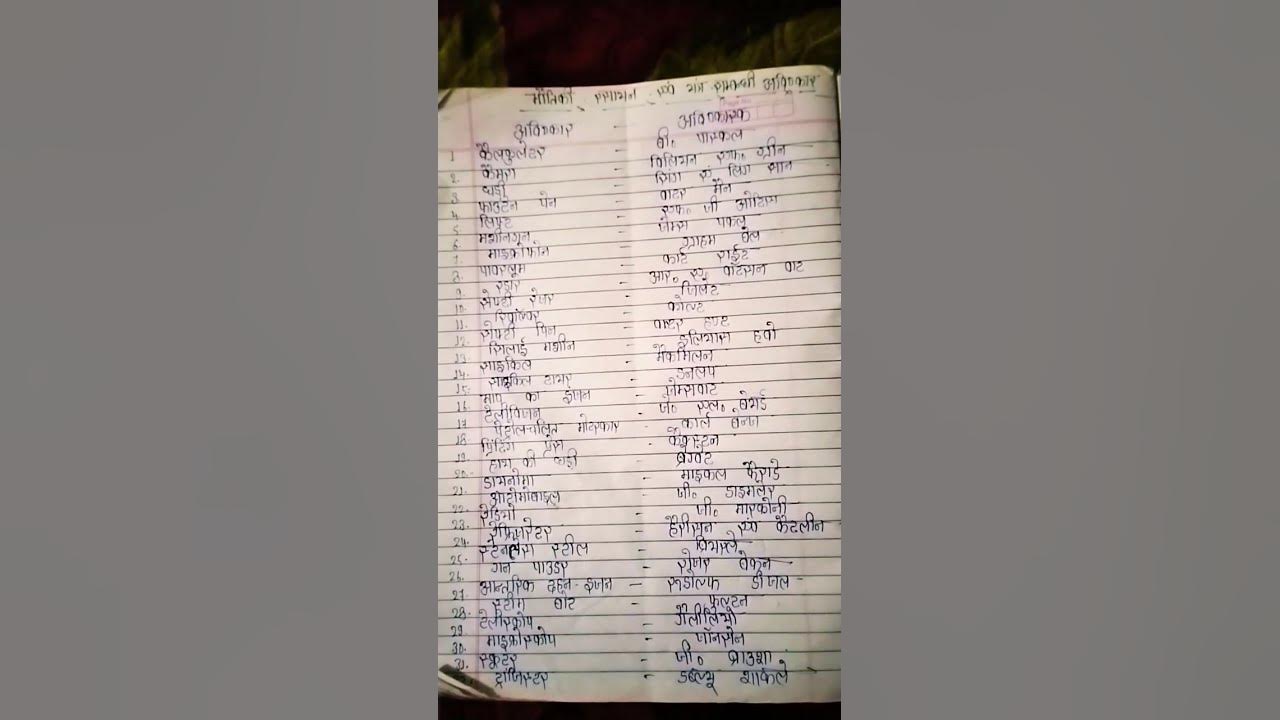 भौतिकी रसायन एवं यंत्र सम्बन्धी अविष्कार
अविष्कार - अविष्कारक
1. कैलकुलेटर - बी० पास्कल
2. कैमरा - विलियन एफ० ग्रीन
3. घड़ी - सिंग एवं लिंग सान
4. फाउंटेन पेन - वाटर मैन
5. लिफ्ट - एफ० जी ओटिस
6. मशीनगन - जेम्स पकल
7. माइक्रोफोन - ग्राहम बेल
8. पावरलूम - कार्ट राईट
9. रडार - आर० ए० वॉटसन वाट
10. सेफ्टी रेजर - जिलेट
11. रिवॉल्वर - कोल्ट
12. सेफ्टी पिन - वाटर हण्ट
13. सिलाई मशीन - इलियास हवो
14. साइकिल - मैकमिलन
15. साइकिल टायर - डनलप
16. भाप का इंजन - जेम्सवाट
17. टेलीविजन - जे० एल० बेयर्ड
18. पेट्रोलचलित मोटरकार - कार्ल बेन्ज
19. प्रिंटिंग प्रेस - कैक्स्टन
20. हाथ की घड़ी - ब्रेगवेट
21. डायनोमो - माइकल फैराडे
22. आटोमोबाइल - जी० डाइमलर
23. रेडियो - जी० मारकोनी
24. रेफ्रिजरेटर - हैरीसन एवं कैटलीन
25. स्टेनलेस स्टील - ब्रियरले
26. गन पाउडर - रोजर बेकन
27. आन्तरिक दहन-इंजन - रूडोल्फ डीजल
28. स्टीम बोट - फुल्टन
29. टेलीस्कोप - गैलीलियो
30. माइक्रोस्कोप - जॉनसेन
31. स्कूटर - जी० ब्राउशा
ट्रांजिस्टर - डब्ल्यू शाकले